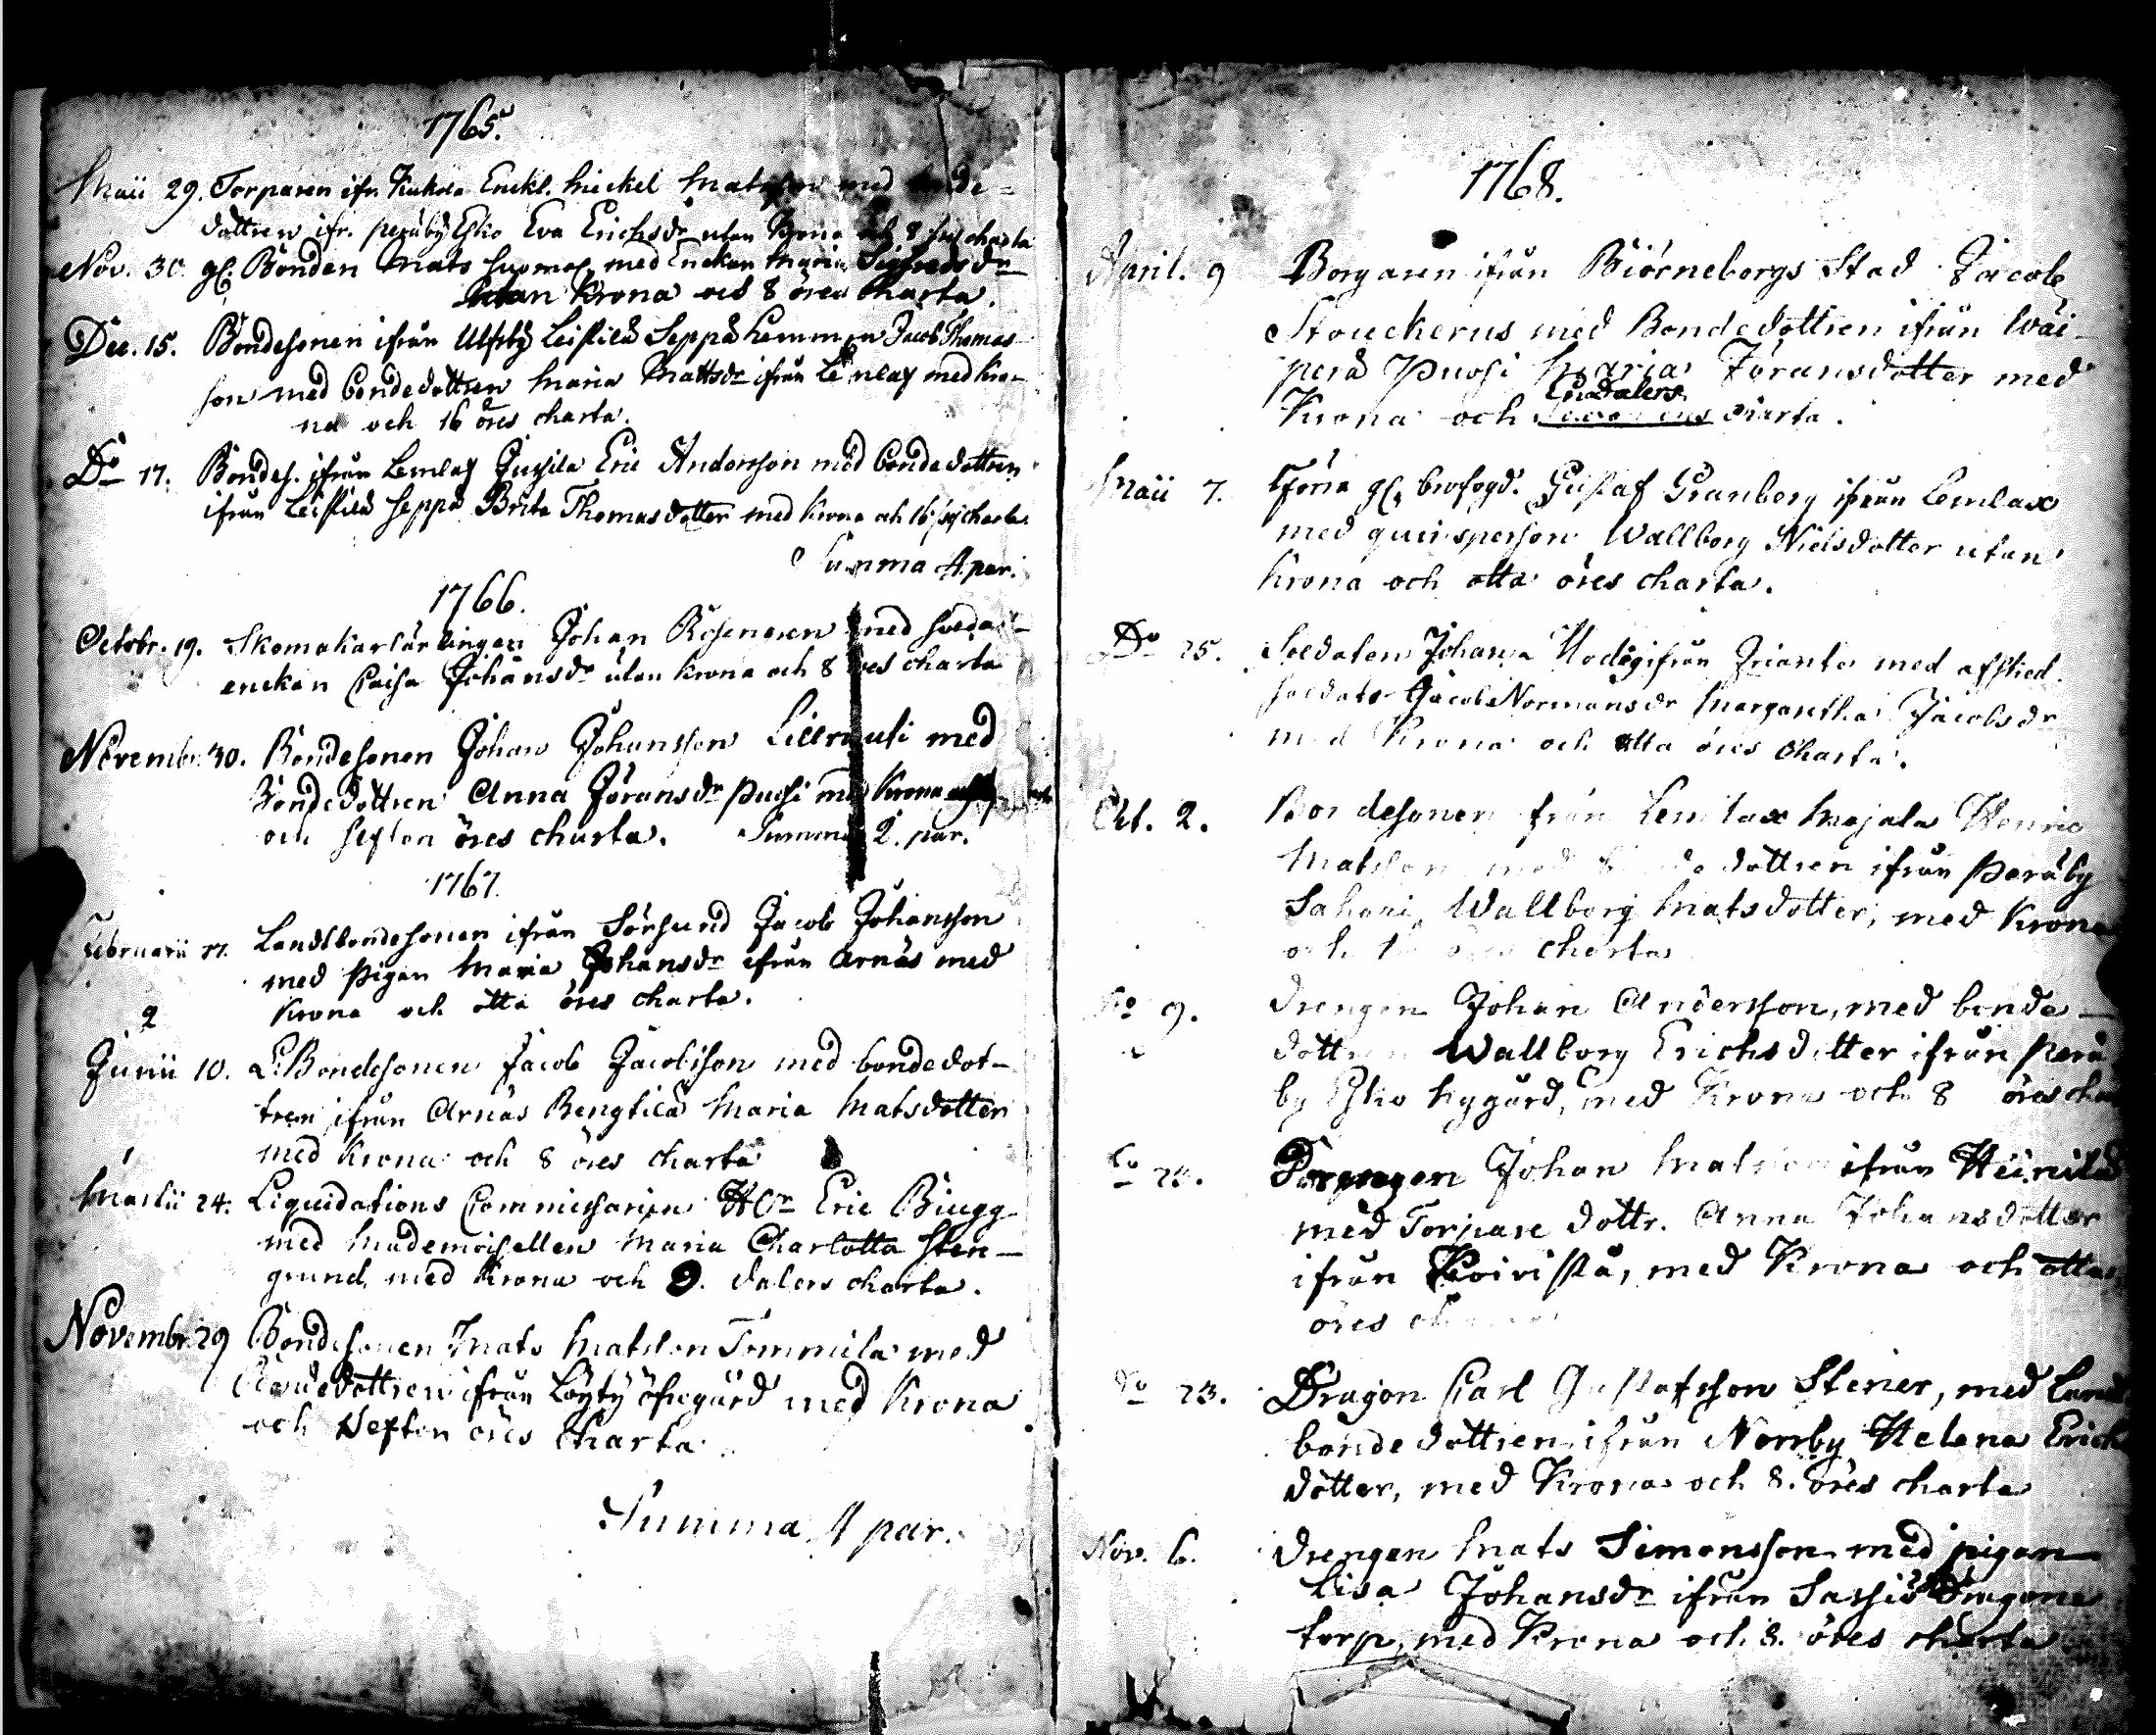 1765.
Maii 29. Torparen ifr. Kukola Enckl. Mickel Matsson med bonde=
dottren ifr. Peråby Esko Eva Erichsdr utan Krona och 8 öres charta
Nov. 30. gl. Bonden Mats med Enckan Maria Sigfredsdr
utan Krona och 8 öres Charta.
Dec. 15. Bondesonen ifrån Ulfsby Leistilä Seppä hemman Jacob Thomas-
son med bondedottren Maria Mattsdr ifrån Lemlax med Kro-
na och 16 öres charta.
Do 17. Bondes. ifrån Lemlax Jussila Eric Andersson med bondedottren
ifrån Leistilä Seppä Brita Thomasdotter med Krona och 16 öres charta
Summa 4 par.
1766.
Octobr. 19. Skomakarlärlingen Johan Rosengren med soldat-
enckan Caisa Johansdr utan Krona och 8 öres charta
Novembr. 30. Bondesonen Johan Johansson Lillrausi med
Bondedottren Anna Jöransdr Puosi med Krona
och sexton öres charta. Summa 2. par.
1767.
Februarii 17. Landbondesonen ifrån Sörsund Jacob Johansson
med Pigan Maria Johansdr ifrån Arnäs med
Krona och otta öres charta.
2
Junii 10. L. Bondesonen Jacob Jacobsson med bondedot-
tren ifrån Arnäs Bengtilä Maria Matsdotter
med Krona och 8 öres charta
1
Martii 24. Liquidations Commissarien HEr Eric Biugg
med Mademoisellen Maria Charlotta Sten-
grund, med Krona och 9. dalers charta.
Novembr. 29 Bondesonen Mats Matsson Tommila med
Bondedottren ifrån Löyty öfregård med Krona
och Sexton öres Charta.
Summa 4 par.
1768.
April. 9 Borgaren ifrån Biörneborgs Stad Jacob
Stouckerus med Bondedottren ifrån Wäi-
perä Puosi Maria Jöransdotter med
En dalers
Krona och charta.
Maii 7. Förra gl. brofogd. Gustaf Granberg ifrån Lemlax
med quinsperson Wallborg Nielsdotter utan
Krona och otta öres charta.
Do 25. Soldaten Johan ifrån Friantis med afsked.
soldats Jacob Normansdr Margaretha Jacobsdr
med Krona och otta öres Charta.
Oct. 2. Bondesonen från Lemlax Majala Henric
Matsson med bondedottren ifrån Peråby
Sahari, Wallborg Matsdotter, med Krona
och öres charta
Do 9. Drengen Johan Andersson, med bonde-
dottren Wallborg Erichsdotter ifrån Perå
by Esko Nygård, med Krona och 8 öres cha
Do 23. Drengen Johan Matsson ifrån Heinilä
med Torpare dottr. Anna Johansdotter
ifrån Koivistå, med Krona och otta
öres charta
Do 23. Dragon Carl Gustafsson Stener, med Land
bondedottren ifrån Norrby Helena Erich
dotter, med Krona och 8. öres charta
Nov. 6. Drengen Mats Simonsson med pigan
Lisa Johansdr ifrån Sassis Dragone
torp, med Krona och 8. öres charta